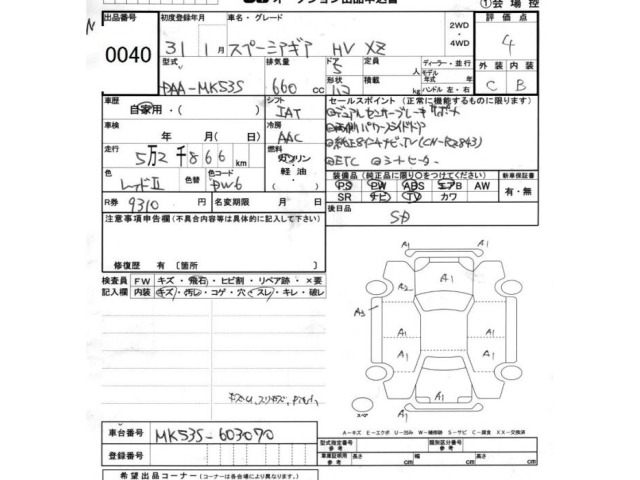 オークション出品申込書
①会場控
出品番号 初度登録年月 車名・グレード 2WD ・ 4WD 評価点
0040 31年1月 スペーシアギア HV XZ 4
型式 排気量 ドア 定員 ディーラー・並行 外装 内装
DAA-MK53S 660cc 5 モデル年式 年
形状 積載 kg ハンドル 左・右 C B
車歴 シフト セールスポイント(正常に機能するものに限ります)
自家用・( ) IAT ①デュアルセンサーブレーキサポート
車検 冷房 ②両側パワースライドドア
年 月(日) AAC ③純正8インチナビTV(CN-RZ843)
走行 燃料 ④ETC ⑤シートヒーター
5万2千866km ガソリン 軽油・
色 色替 色コード 装備品(純正品に限り○をつけてください) 新車保証書
レッドⅡ PW6 PS PW ABS エアB AW 有・無
SR ナビ TV カワ
R券 9310円 名変期限 月 日 後日品
注意事項申告欄(不具合内容等は具体的に記入して下さい) SD
修復歴 有 [箇所 ]
検査員 FW キズ・飛石・ヒビ割・リペア跡・×要
記入欄 内装 キズ・汚レ・コゲ・穴・スレ・キレ・破レ
A1 A1 A1
A2 A1
A3
A1 A1
A1 A1
A1
A-キズ E-エクボ U-凹み W-補修跡 S-サビ C-腐食 XX-交換済
車台番号 MK53S-603070
型式指定番号 参考 類別区分番号 参考
登録番号 車庫証明用 参考 長さ cm 幅 cm 高さ cm
希望出品コーナー(コーナーは各会場により異なります)